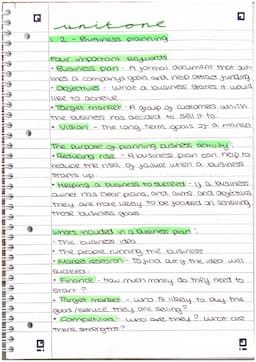 unit one
1.2 - Business planning
Four important keywords
• Business plan - A formal document that out
lines a companys goals and help obtain funding
• Objectives - What a business states it would
like to achieve
• Target market - A group of customers which
the business has decided to sell it to.
• Vision - The long term goals of a market
The purpose of planning business activity:
• Reducing risk - A business plan can help to
reduce the risk of failure when a business
starts up
• Helping a business to succeed - if a business
owner has clear plans, and aims and objectives
they are more likely to be focused on achieving
those business goals
Whats included in a business plan:
• The business idea
• The people running the business
• Market research - To find out if the idea will
succeed.
• Finance - How much money do they need to
start?
• Target market - who is likely to buy the
good/service they are selling?
• Competitors - who are they? What are
there strengths?